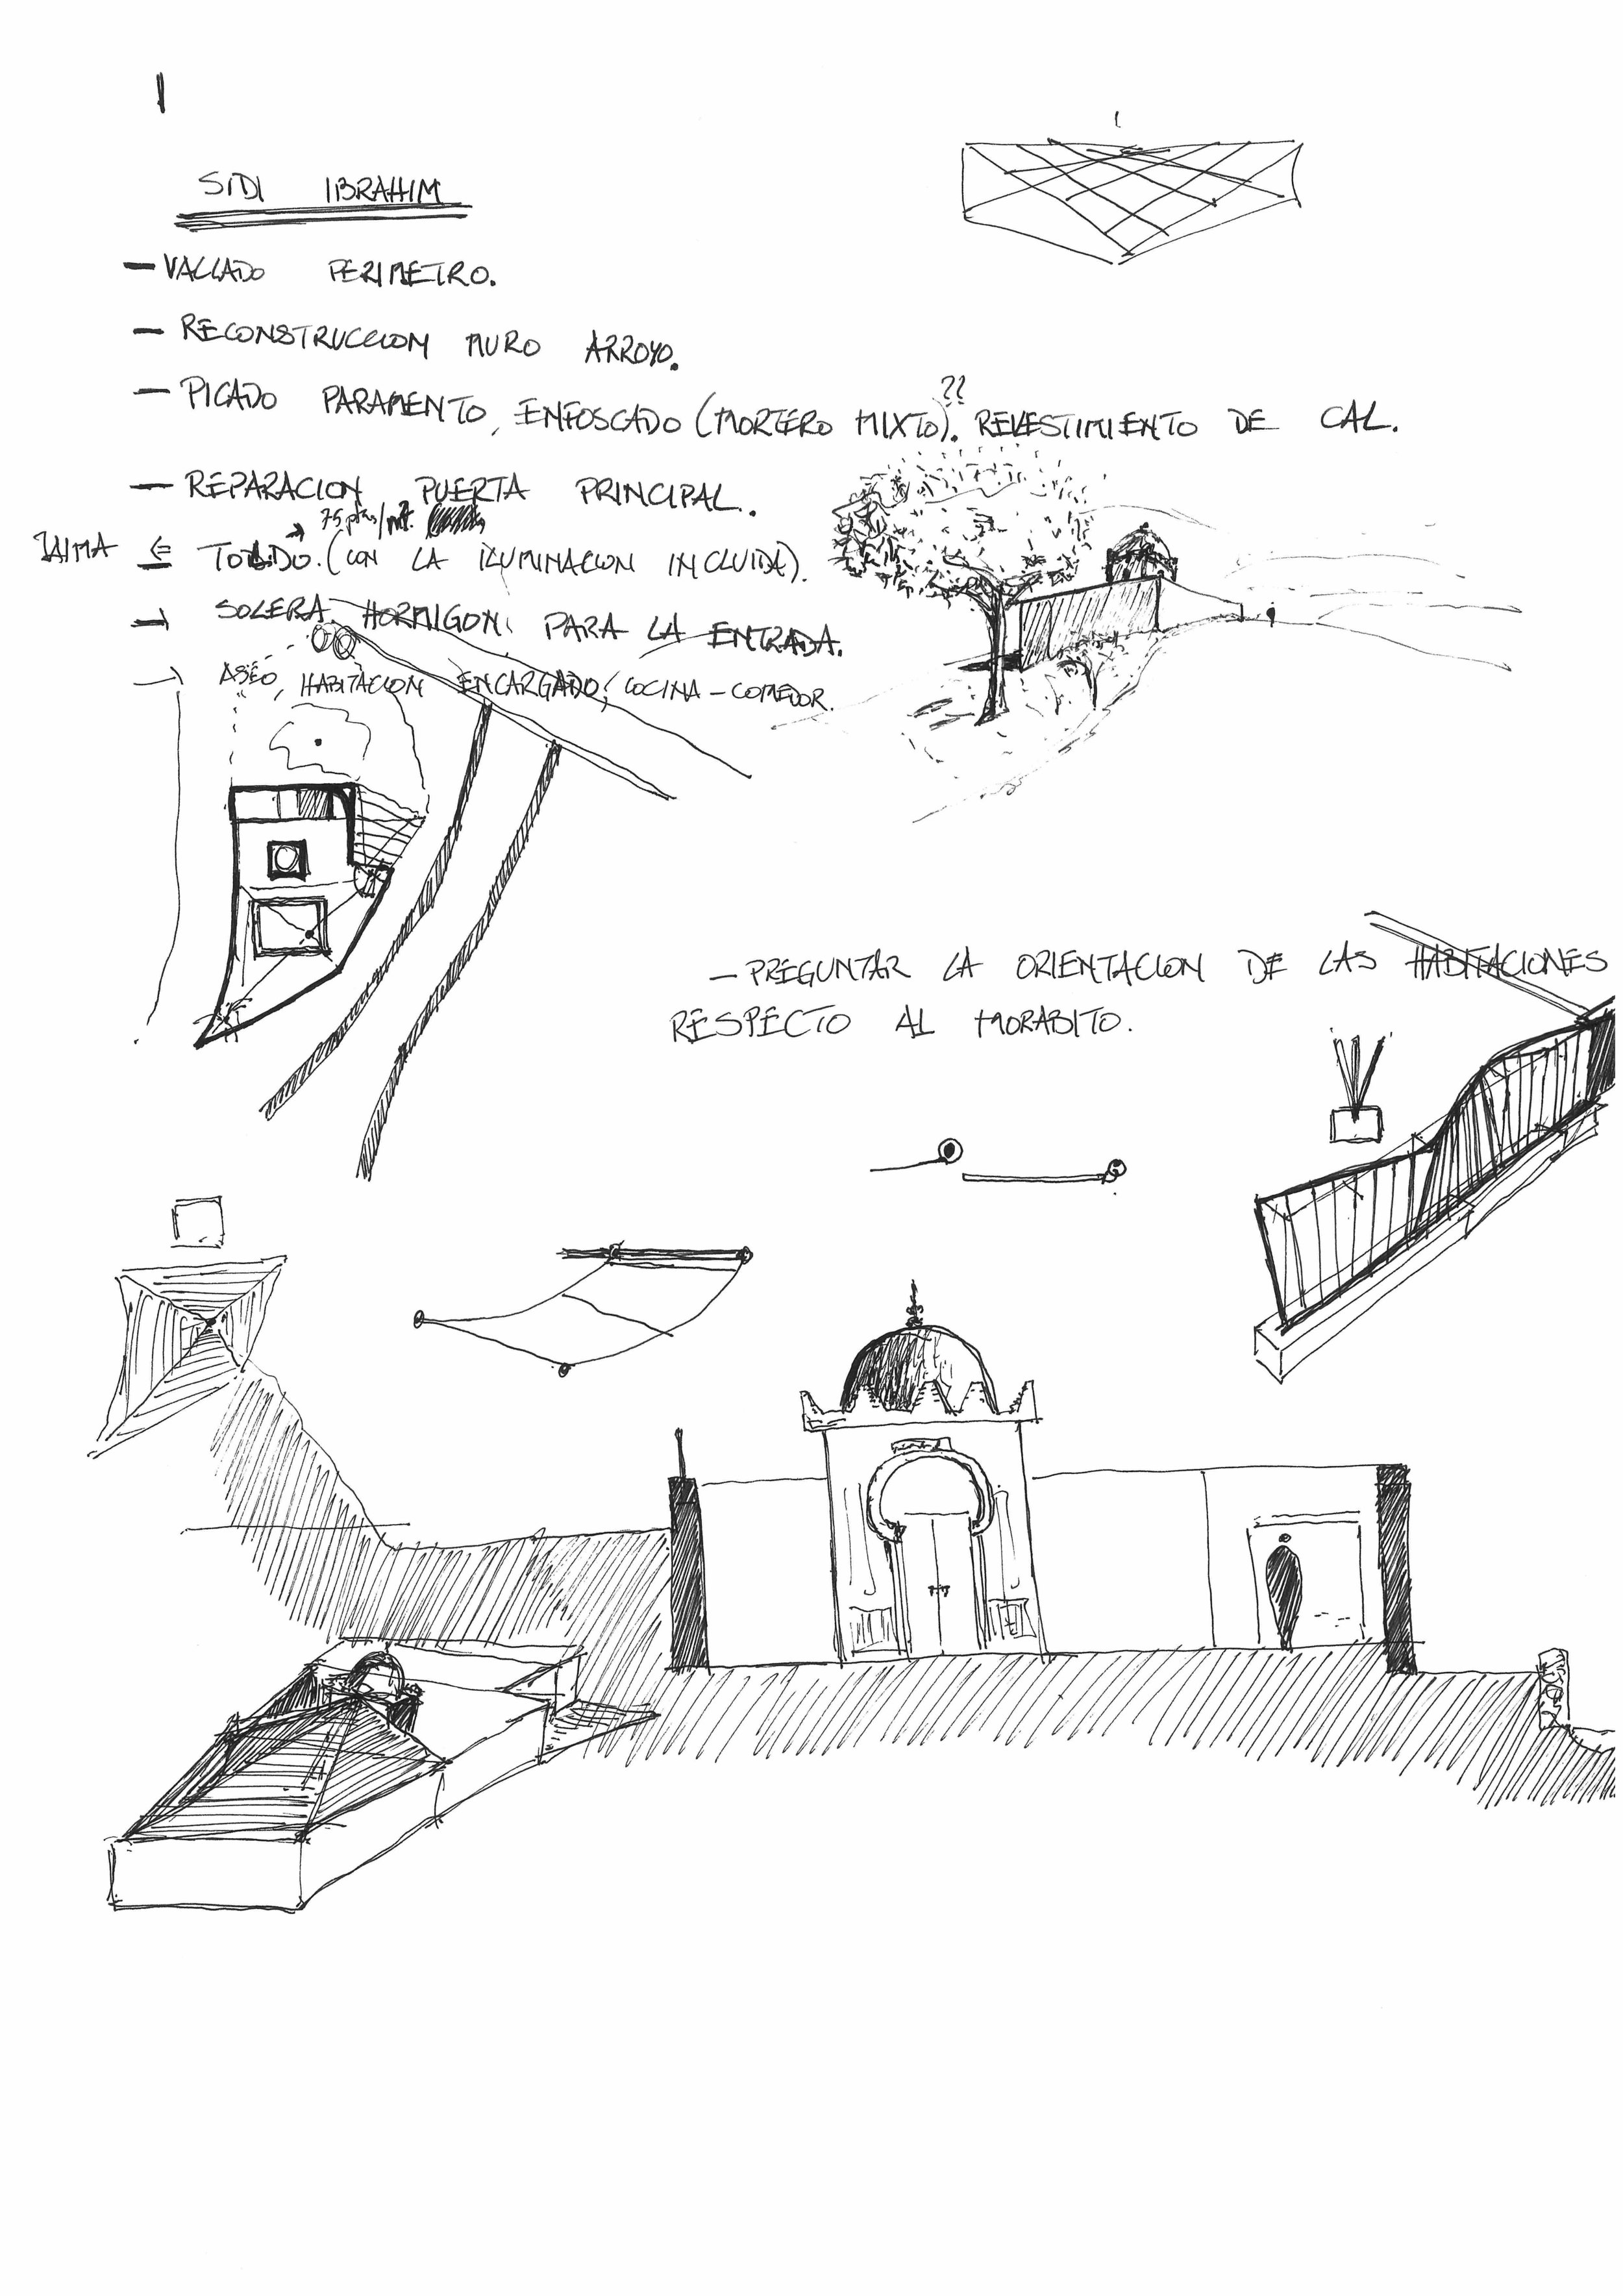 1
SIDI IBRAHIM
- VALLADO PERIMETRO.
- RECONSTRUCCION MURO ARROYO.
- PICADO PARAMENTO, ENFOSCADO (MORTERO MIXTO)??. REVESTIMIENTO DE CAL.
- REPARACION PUERTA PRINCIPAL.
→ 75 ptas/m².
JAIMA ⇐ TOLDO. (CON LA ILUMINACION INCLUIDA).
→ SOLERA HORMIGON PARA LA ENTRADA.
→ ASEO, HABITACION ENCARGADO, COCINA - COMEDOR.
- PREGUNTAR LA ORIENTACION DE LAS HABITACIONES
RESPECTO AL MORABITO.